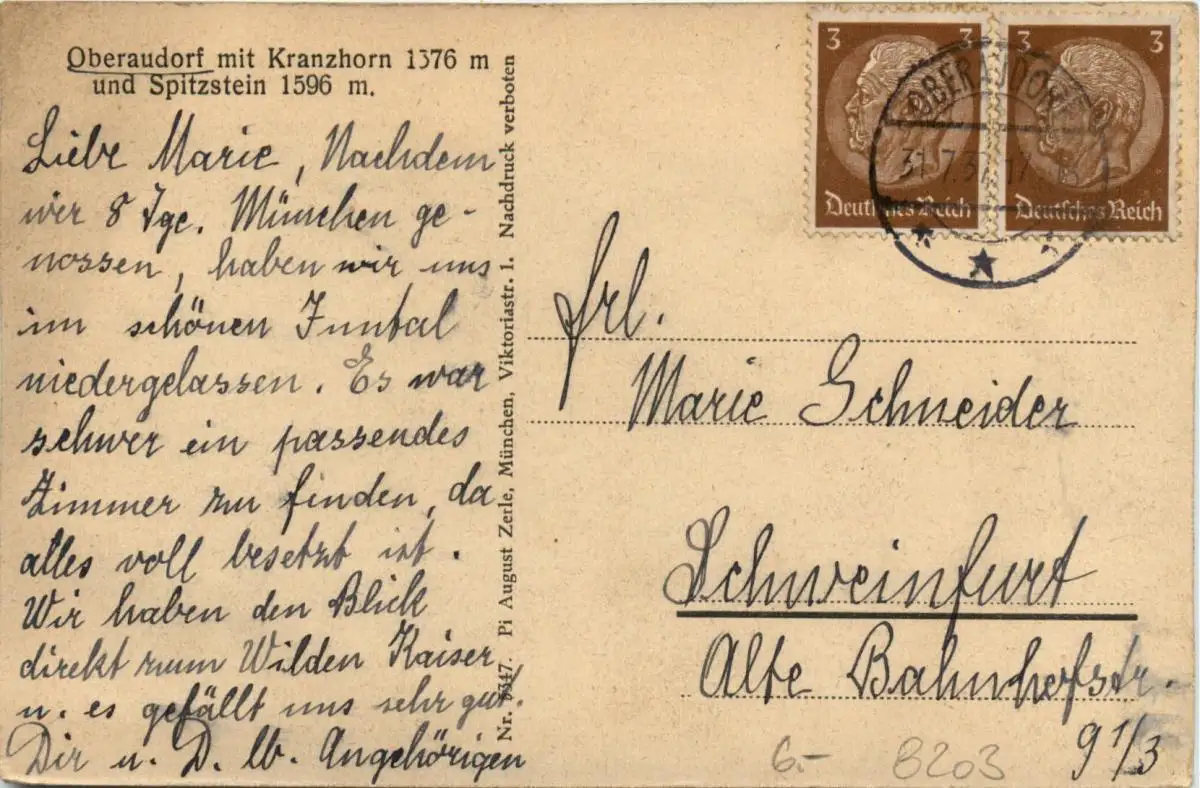 Oberaudorf mit Kranzhorn 1376 m
und Spitzstein 1596 m.
Liebe Marie, Nachdem
wir 8 Tge. München ge-
nossen, haben wir uns
im schönen Inntal
niedergelassen. Es war
schwer ein passendes
Zimmer zu finden, da
alles voll besetzt ist.
Wir haben den Blick
direkt zum Wilden Kaiser
u. es gefällt uns sehr gut.
Dir u. D. lb. Angehörigen
Pi August Zerle, München, Viktoriastr. 1. Nachdruck verboten
3 3
Deutsches Reich
3 3
Deutsches Reich
OBERAUDORF
31.7.37.17
Frl.
Marie Schneider
Schweinfurt
Alte Bahnhofstr.
9 1/3
6.- 8203